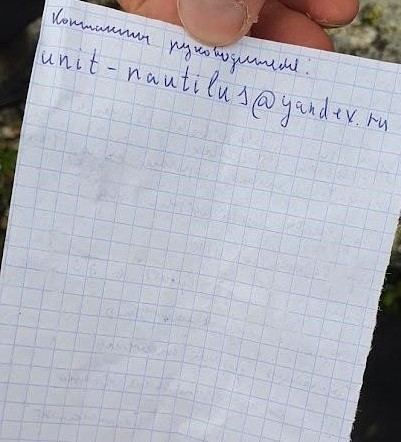 Контакты руководителя:
unit-nautilus@yandex.ru